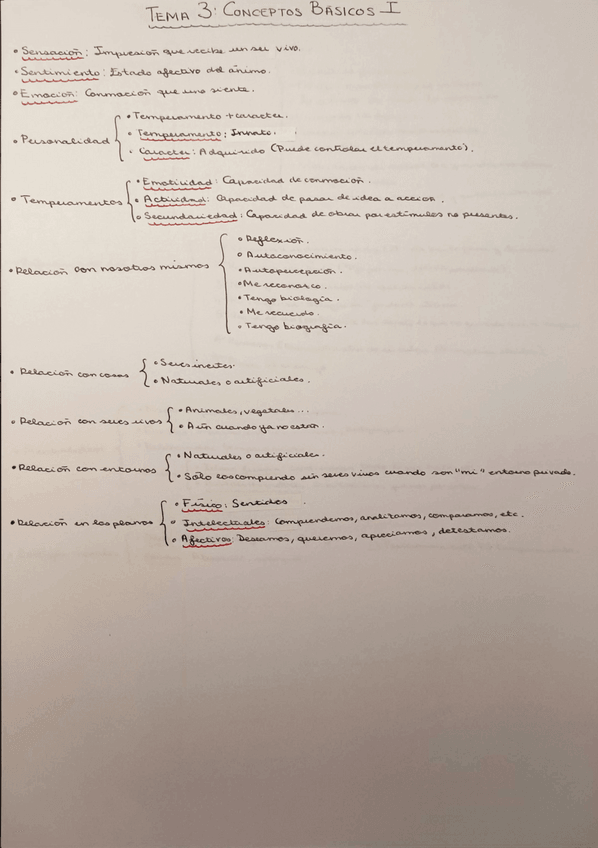 TEMA 3: CONCEPTOS BÁSICOS I
• Sensación: Impresión que recibe un ser vivo.
• Sentimiento: Estado afectivo del ánimo.
• Emoción: Conmoción que uno siente.
• Personalidad
• Temperamento + carácter.
• Temperamento: Innato.
• Carácter: Adquirido (Puede controlar el temperamento).
• Temperamentos
• Emotividad: Capacidad de conmoción.
• Actividad: Capacidad de pasar de idea a acción.
• Secundariedad: Capacidad de obrar por estímulos no presentes.
• Relación con nosotros mismos
• Reflexión.
• Autoconocimiento.
• Autopercepción.
• Me reconozco.
• Tengo biología.
• Me recuerdo.
• Tengo biografía.
• Relación con cosas
• Seres inertes.
• Naturales o artificiales.
• Relación con seres vivos
• Animales, vegetales...
• Aún cuando ya no están.
• Relación con entornos
• Naturales o artificiales.
• Sólo los comprendo sin seres vivos cuando son "mi" entorno privado.
• Relación en los planos
• Físico: Sentidos.
• Intelectuales: Comprendemos, analizamos, comparamos, etc.
• Afectivos: Deseamos, queremos, apreciamos, detestamos.